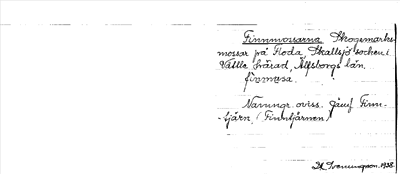 Finnmossarna Skogsmarks-
mossar på Floda, Skallsjö socken i
Vättle härad, Älfsborgs län.
finmosa.
Namngr. oviss. Jämf Finn-
tjärn (Finntjärnen)
1938